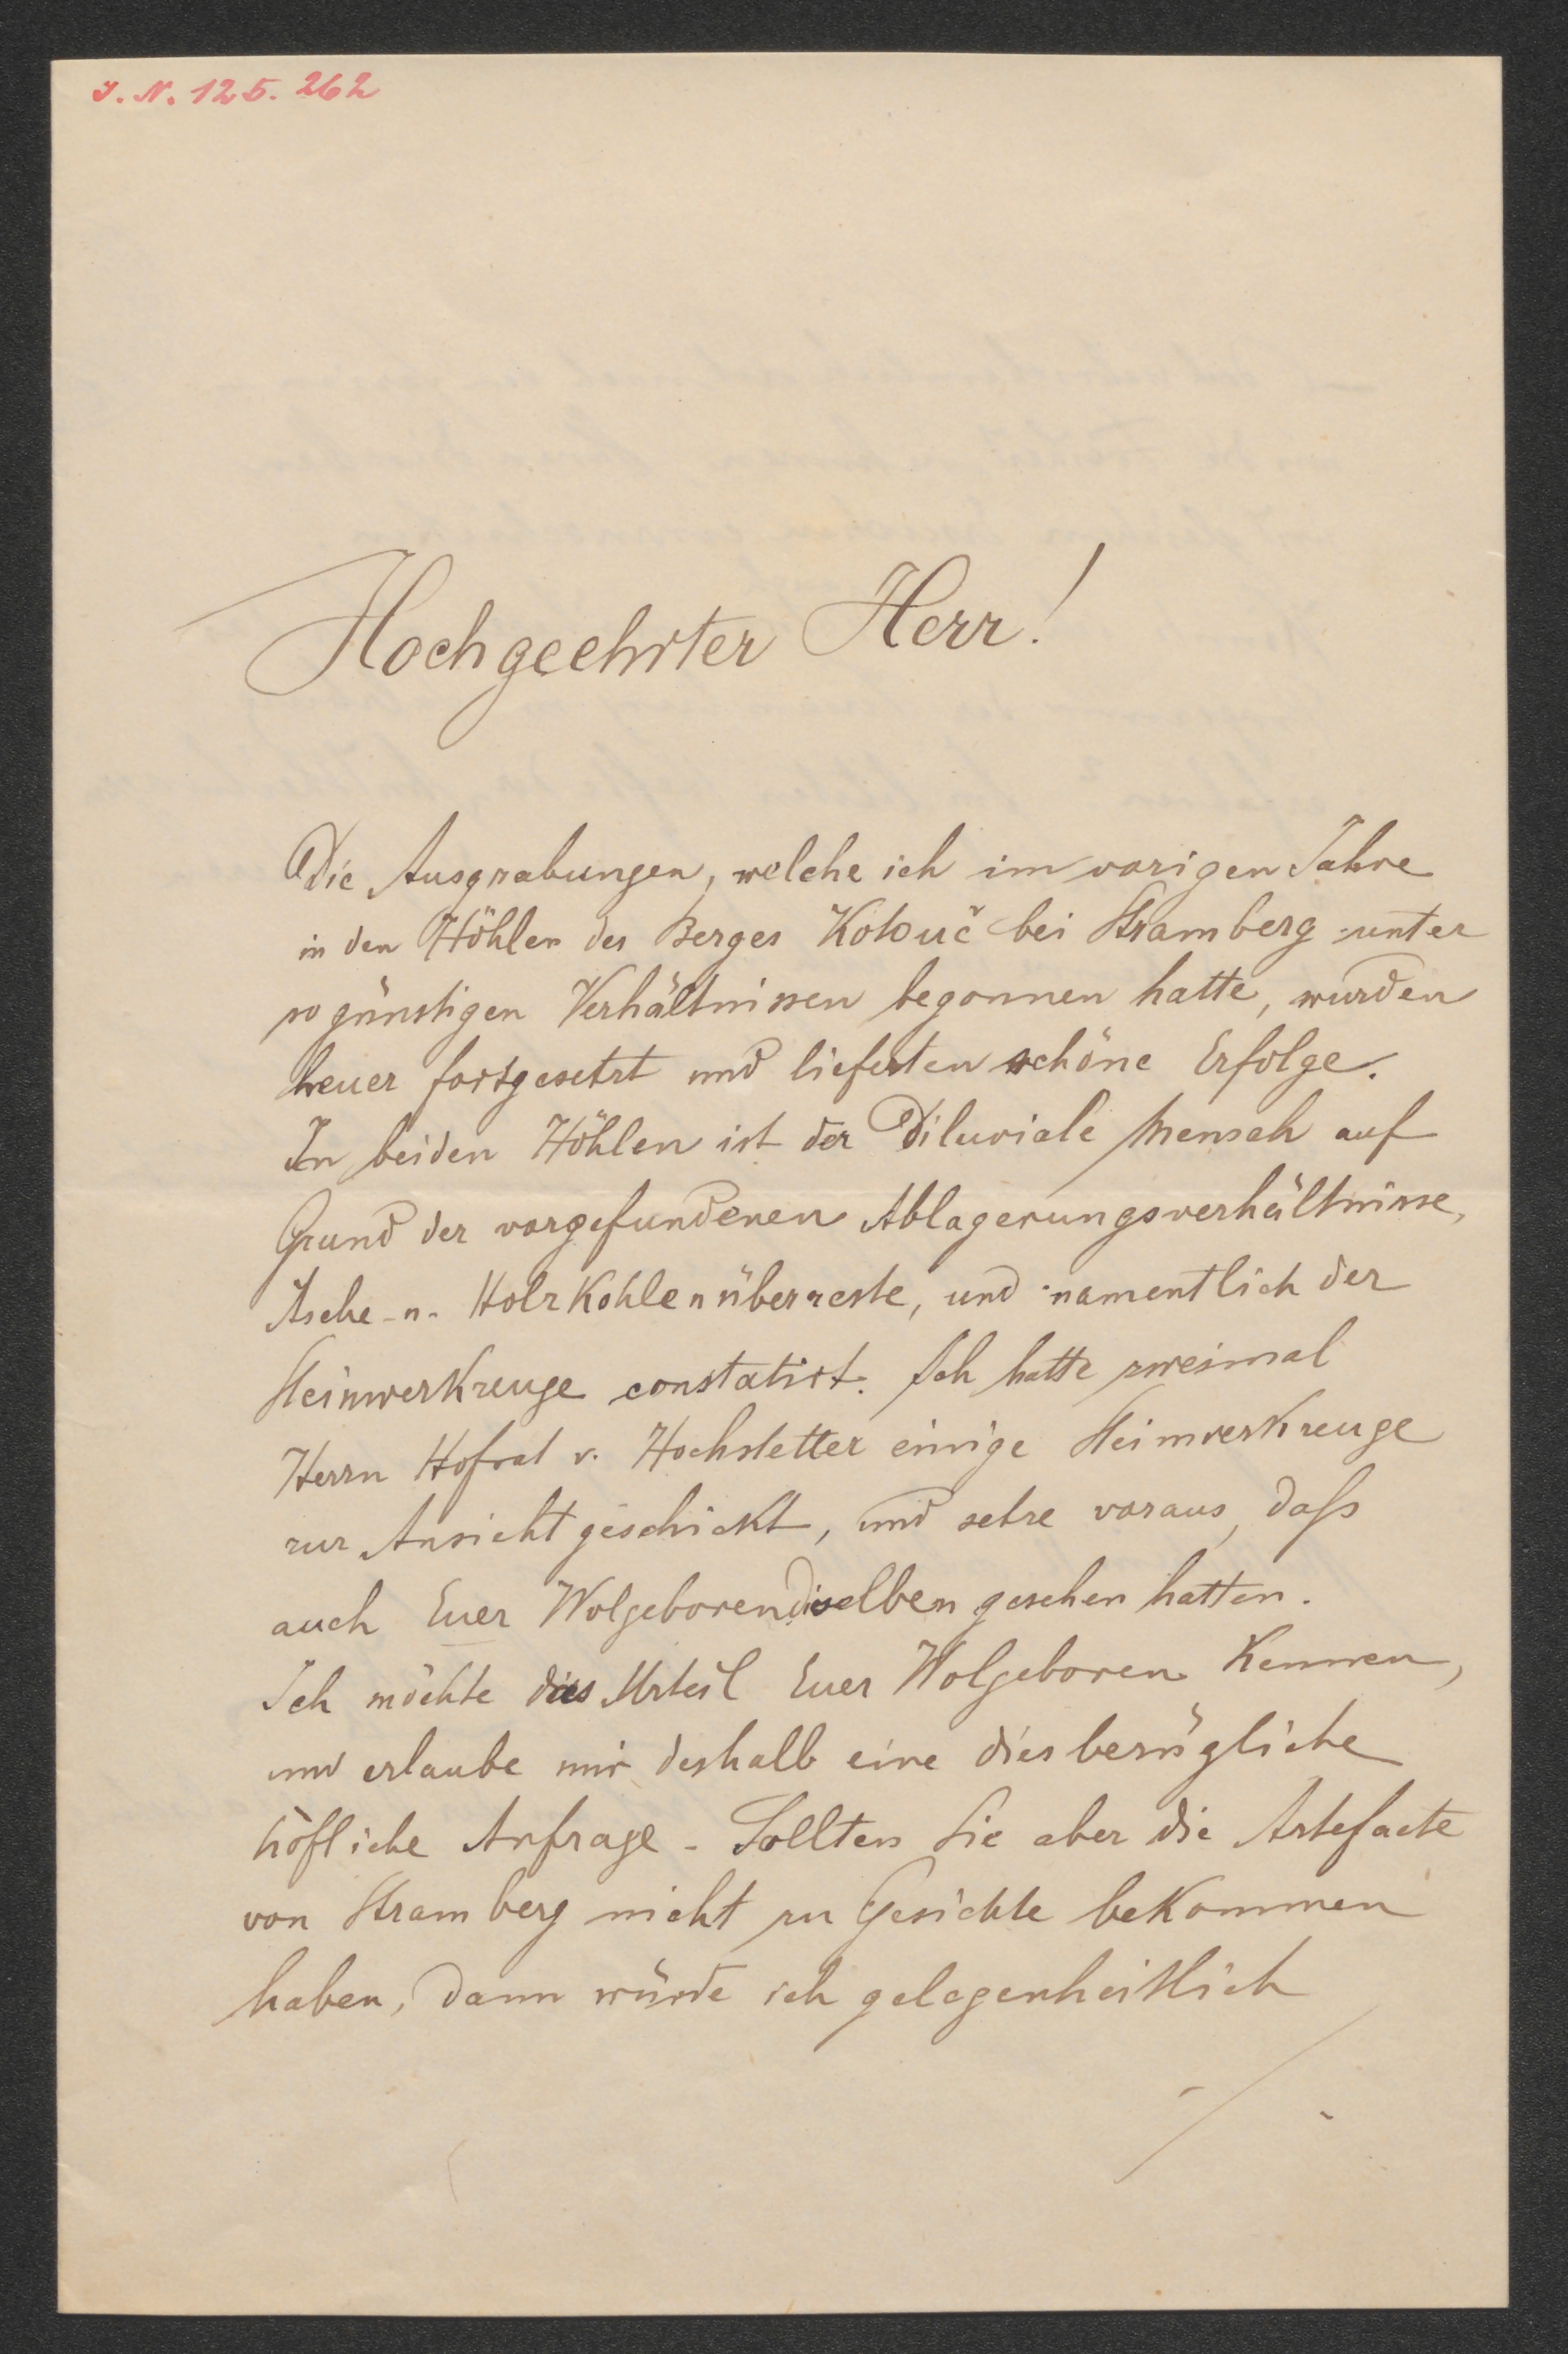 I. N. 125. 262
Hochgeehrter Herr!
Die Ausgrabungen, welche ich im vorigen Jahre
in den Höhlen des Berges Kotouč bei Stramberg unter
so günstigen Verhältnissen begonnen hatte, wurden
heuer fortgesetzt und lieferten schöne Erfolge.
In beiden Höhlen ist der Diluviale Mensch auf
Grund der vorgefundenen Ablagerungsverhältnisse,
Asche- u. Holzkohlenüberreste, und namentlich der
Steinwerkzeuge constatirt. Ich hatte zweimal
Herrn Hofrat v. Hochstetter einige Steinwerkzeuge
zur Ansicht geschickt, und setze voraus, daſs
auch Euer Wolgeboren dieselben gesehen hatten.
Ich möchte das Urteil Euer Wolgeboren kennen,
und erlaube mir deshalb eine diesbezügliche
höfliche Anfrage - Sollten Sie aber die Artefacte
von Stramberg nicht zu Gesichte bekommen
haben, dann würde ich gelegenheitlich